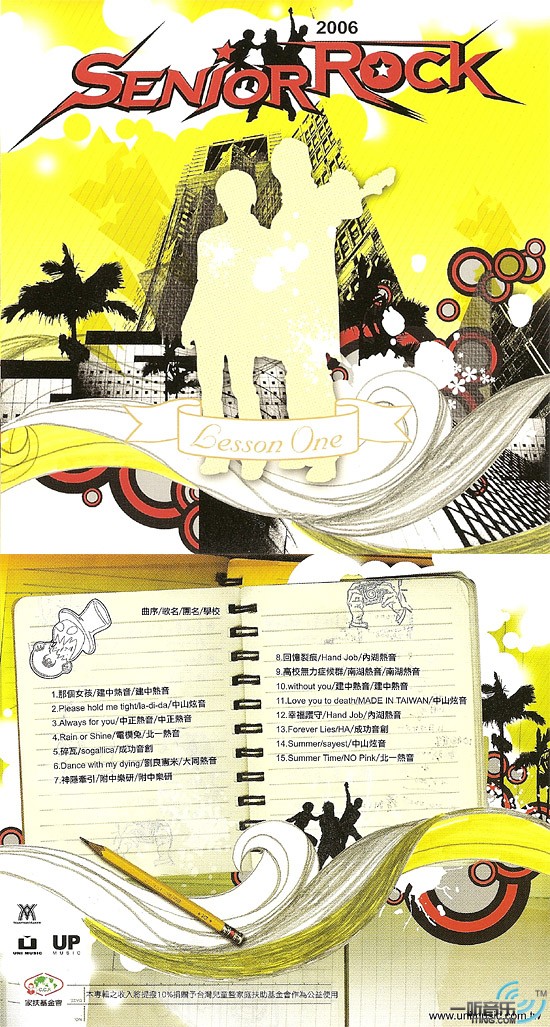 2006
SENIOR ROCK
Lesson One
曲序/歌名/團名/學校
1.那個女孩/建中熱音/建中熱音
2.Please hold me tight/la-di-da/中山炫音
3.Always for you/中正熱音/中正熱音
4.Rain or Shine/電模兔/北一熱音
5.碎瓦/sogallica/成功音創
6.Dance with my dying/劉良憲米/大同熱音
7.神隱牽引/附中樂研/附中樂研
8.回憶裂痕/Hand Job/內湖熱音
9.高校無力症候群/南湖熱音/南湖熱音
10.without you/建中熱音/建中熱音
11.Love you to death/MADE IN TAIWAN/中山炫音
12.幸福護守/Hand Job/內湖熱音
13.Forever Lies/HA/成功音創
14.Summer/sayest/中山炫音
15.Summer Time/NO Pink/北一熱音
UNI MUSIC
UP
MUSIC
家扶基金會
本專輯之收入將提撥10%捐贈予台灣兒童暨家庭扶助基金會作為公益使用
一听音乐
1TING.COM
TM